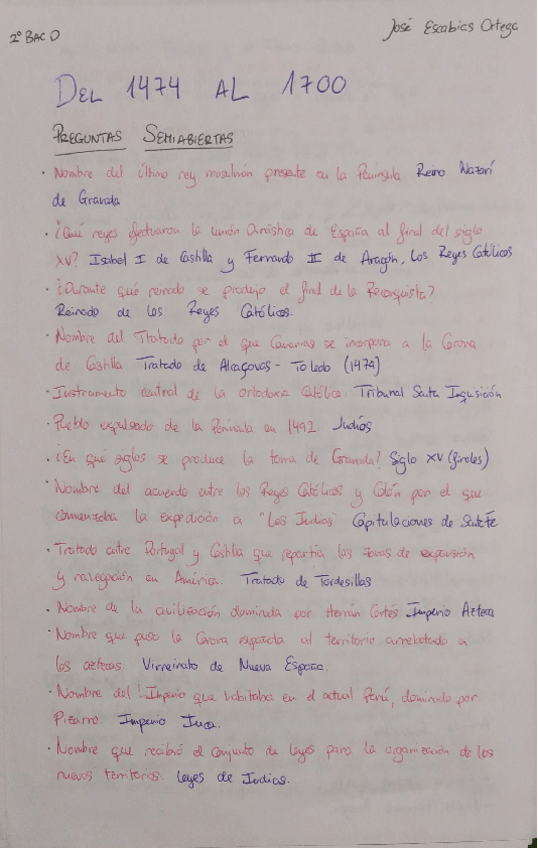 2º BAC D
José Escobias Ortega
DEL 1474 AL 1700
PREGUNTAS SEMIABIERTAS
· Nombre del último rey musulmán presente en la Península Reino Nazarí
de Granada
· ¿Qué reyes efectuaron la unión dinástica de España al final del siglo
XV? Isabel I de Castilla y Fernando II de Aragón, los Reyes Católicos
· ¿Durante qué reinado se produjo el final de la Reconquista?
Reinado de los Reyes Católicos.
· Nombre del Tratado por el que Canarias se incorpora a la Corona
de Castilla Tratado de Alcaçovas - Toledo (1479)
· Instrumento central de la ortodoxia Católica Tribunal Santa Inquisición
· Pueblo expulsado de la Península en 1492 Judíos
· ¿En qué siglos se produce la toma de Granada? Siglo XV (finales)
· Nombre del acuerdo entre los Reyes Católicos y Colón por el que
comenzaba la expedición a "Las Indias" Capitulaciones de Santa Fe
· Tratado entre Portugal y Castilla que repartía las zonas de expansión
y navegación en América. Tratado de Tordesillas
· Nombre de la civilización dominada por Hernán Cortés Imperio Azteca
· Nombre que puso la Corona española al territorio arrebatado a
los aztecas. Virreinato de Nueva España.
· Nombre del Imperio que habitaba en el actual Perú, dominado por
Pizarro. Imperio Inca.
· Nombre que recibió el conjunto de leyes para la organización de los
nuevos territorios. Leyes de Indias.